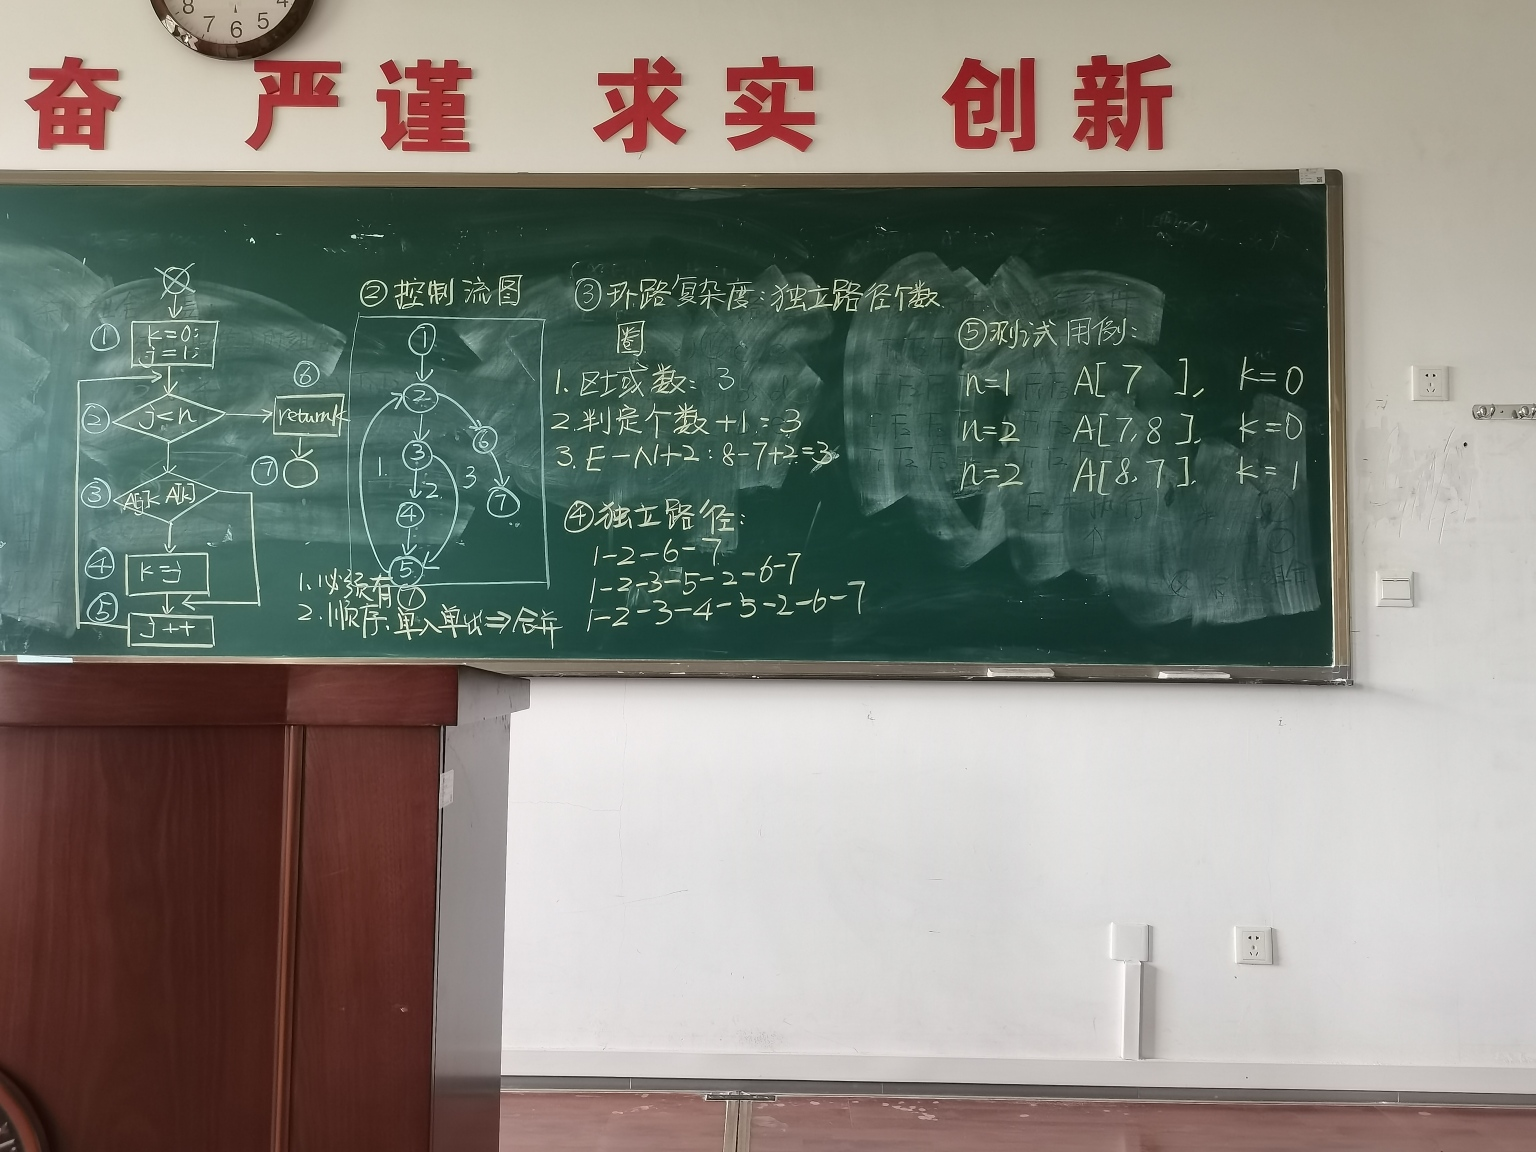 8 7 6 5 4
奋 严谨 求实 创新
① k=0;
j=1;
② j<n
⑥
return k
⑦
③ A[j]<A[k]
④ k=j
⑤ j++
②控制流图
①
②
③
④
⑤
⑥
⑦
1.
2
3
1.必须有⑦
2.顺序、单入单出⇒合并
③环路复杂度:独立路径个数
圈
1.区域数:3
2.判定个数+1=3
3.E-N+2:8-7+2=3
④独立路径:
1-2-6-7
1-2-3-5-2-6-7
1-2-3-4-5-2-6-7
⑤测试用例:
n=1 A[7 ], k=0
n=2 A[7,8], k=0
n=2 A[8,7], k=1